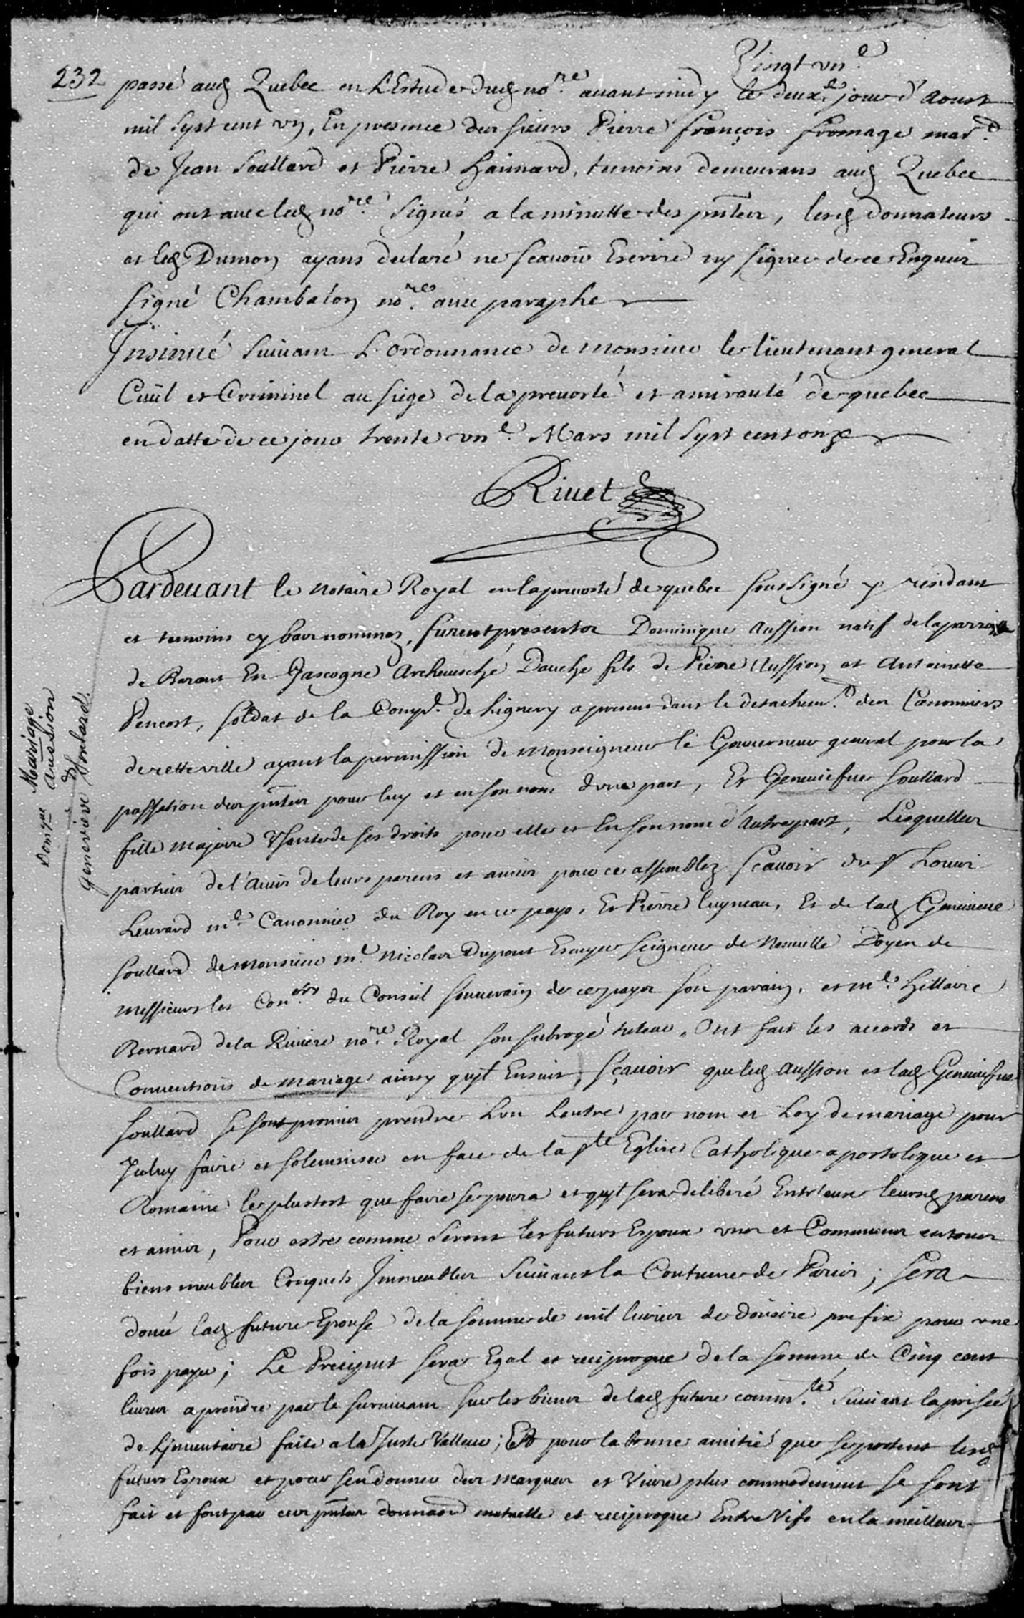 Vingt un.e
232 passé aud Quebec en L'Estude dud no.re avant midy le deux.e jour d'Aoust
mil sept cent un, En presence des sieurs Pierre françois fromage mar.d
de Jean Soullard et Pierre haimard, temoins demeurans aud Quebec
qui ont avec led no.re signés a la minutte des pnter, lesd donnateurs
et led Dumon ayans declaré ne scavoir Escrire ny signer de ce Enquis
signé Chambalon no.re avec paraphe
Insinué suivant L'ordonnance de monsieur le lieutenant general
Civil et Criminel au siege de la prevosté et amirauté de quebec
en datte de ce jour trente un.e Mars mil sept cent onze
Rivet
Pardevant le Notaire Royal en la prevosté de quebec soussigné y residant
et temoins cy bas nommez, furent presents Dominique Aussion natif de la parroisse
de Beraut En Gascogne Archevesché Dauche fils de Pierre Aussion et Antoinette
Pencort, soldat de la Comp.e de Lignery a present dans le detachem.t des Canoniers
de cette ville ayant la permission de Monseigneur le Gouverneur general pour la
passation des pntes pour luy et en son nom d'une part, Et Geneviefve Soullard
fille majeure Usante de ses droits pour elle et En son nom d'Autre part, Lesquelles
parties de l'avis de leurs parens et amis pour ce assemblez scavoir du Sr Louis
Levrard m.e Canonnier du Roy en ce pays, Et Pierre Luyneau, Et de lad Genevieve
Soullard de Monsieur m.e Nicolas Dupont Escuyer seigneur de Neuville Doyen de
messieurs les Con.ers du Conseil souverain de ce pays son parain, et m.e Hillaire
Bernard de la Riviere no.re Royal son subrogé tuteur, Ont fait les accords et
Conventions de mariage ainsy qu'il Ensuit, sçavoir que led Aussion et lad Genevieffve
Soullard se sont promis prendre L'un L'autre par nom et Loy de mariage pour
Iceluy faire et solemniser en face de la s.te Eglise Catholique apostolique et
Romaine le plustost que faire se poura et qu'il sera deliberé Entr'eux leursd parens
et amis, Pour estre comme seront les futurs Epoux uns et Communs en tous
biens meubles Conquets Immeubles suivant la Coutume de Paris; sera
doué lad future Epouse de la somme de mil livres de Douaire prefix pour une
fois payé; Le Preciput sera Egal et reciproque de la somme de Cinq cent
livres a prendre par le survivant sur les biens de lad future comm.té suivant la prisée
de L'inventaire faite a la Juste Valleur; Et pour la bonne amitié que se portent lesd
futurs Epoux et pour s'en donner des marques et Vivre plus commodement se sont
fait et font par ces pntes donnaon mutuelle et reciproque Entre Vifs en la meilleur
Mariage
Domque Aussion
&
Genevieve Soulard.